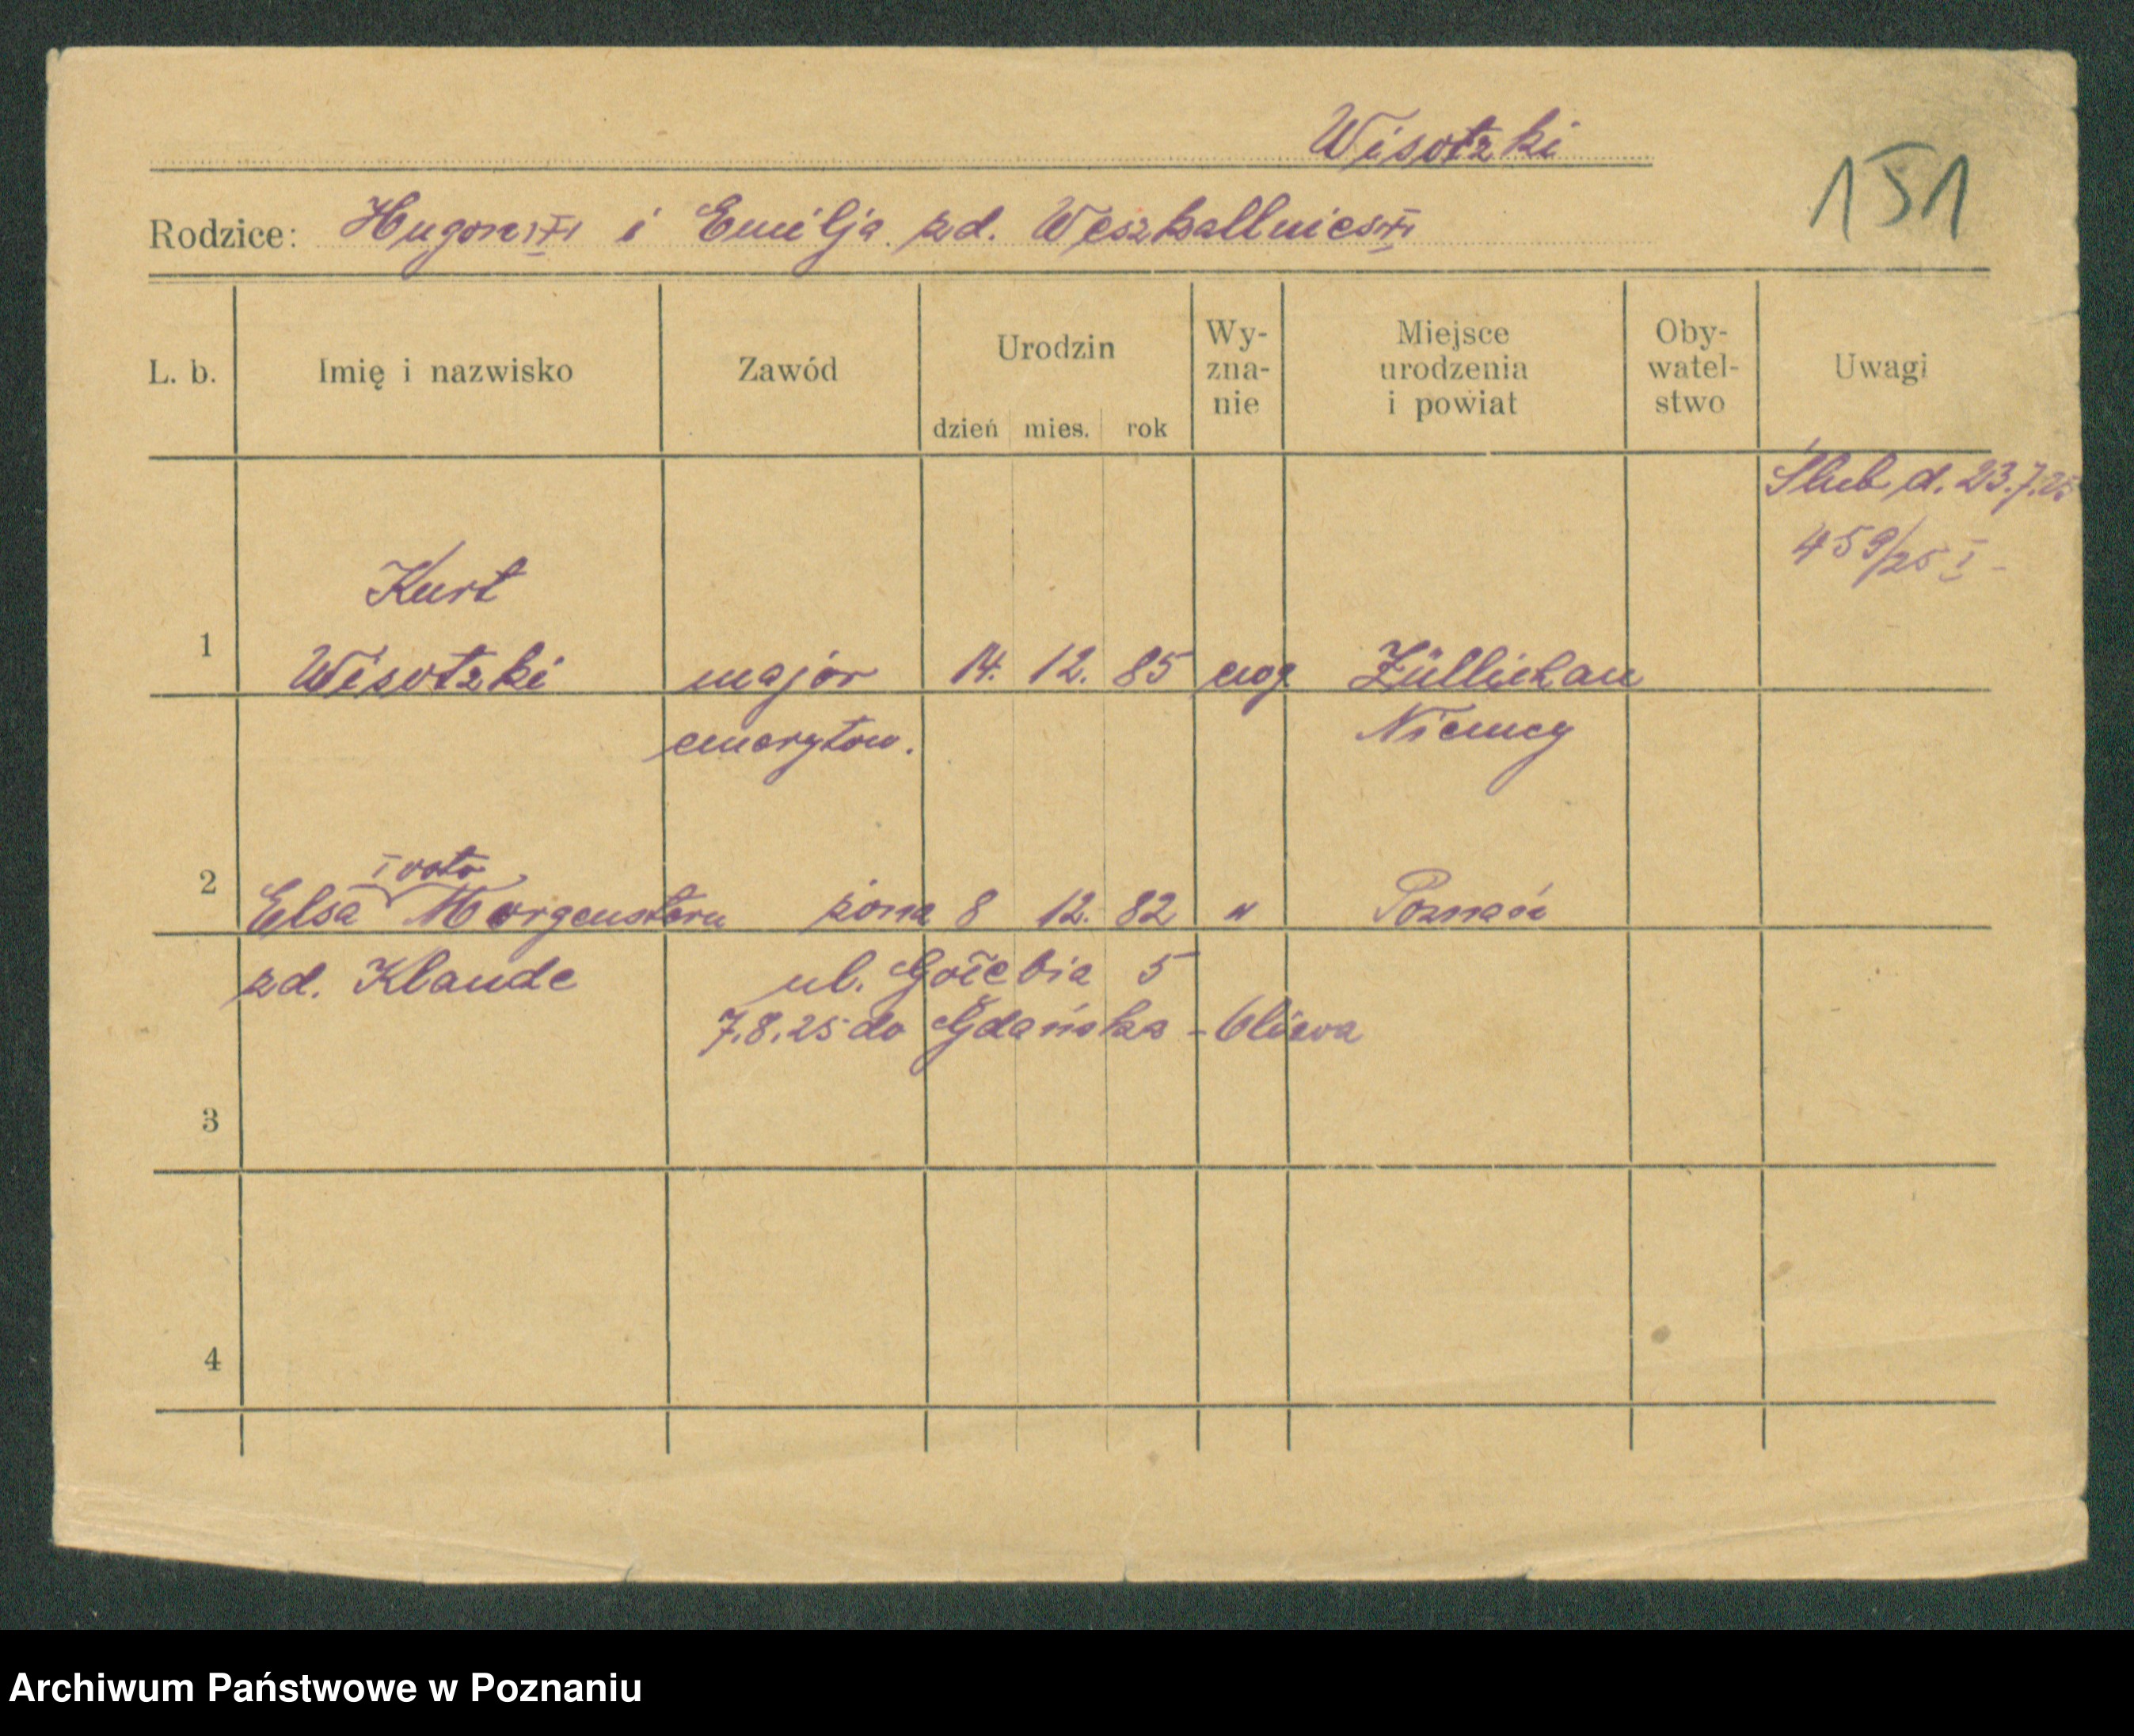 Wisotzki
151
Rodzice: Hugon i Emilja zd. Weszkallnies
L. b. Imię i nazwisko Zawód Urodzin dzień mies. rok Wy-zna-nie Miejsce urodzenia i powiat Oby-watel-stwo Uwagi
Ślub d. 23.7.25
459/25 I
Kurt
1 Wisotzki major 14. 12. 85 ewg Züllichau
emerytow. Niemcy
I voto
2 Elsa Morgenstern żona 8 12. 82 " Poznań
zd. Klaude ul. Gołębia 5
7.8.25 do Gdańska - Oliwa
3
4
Archiwum Państwowe w Poznaniu